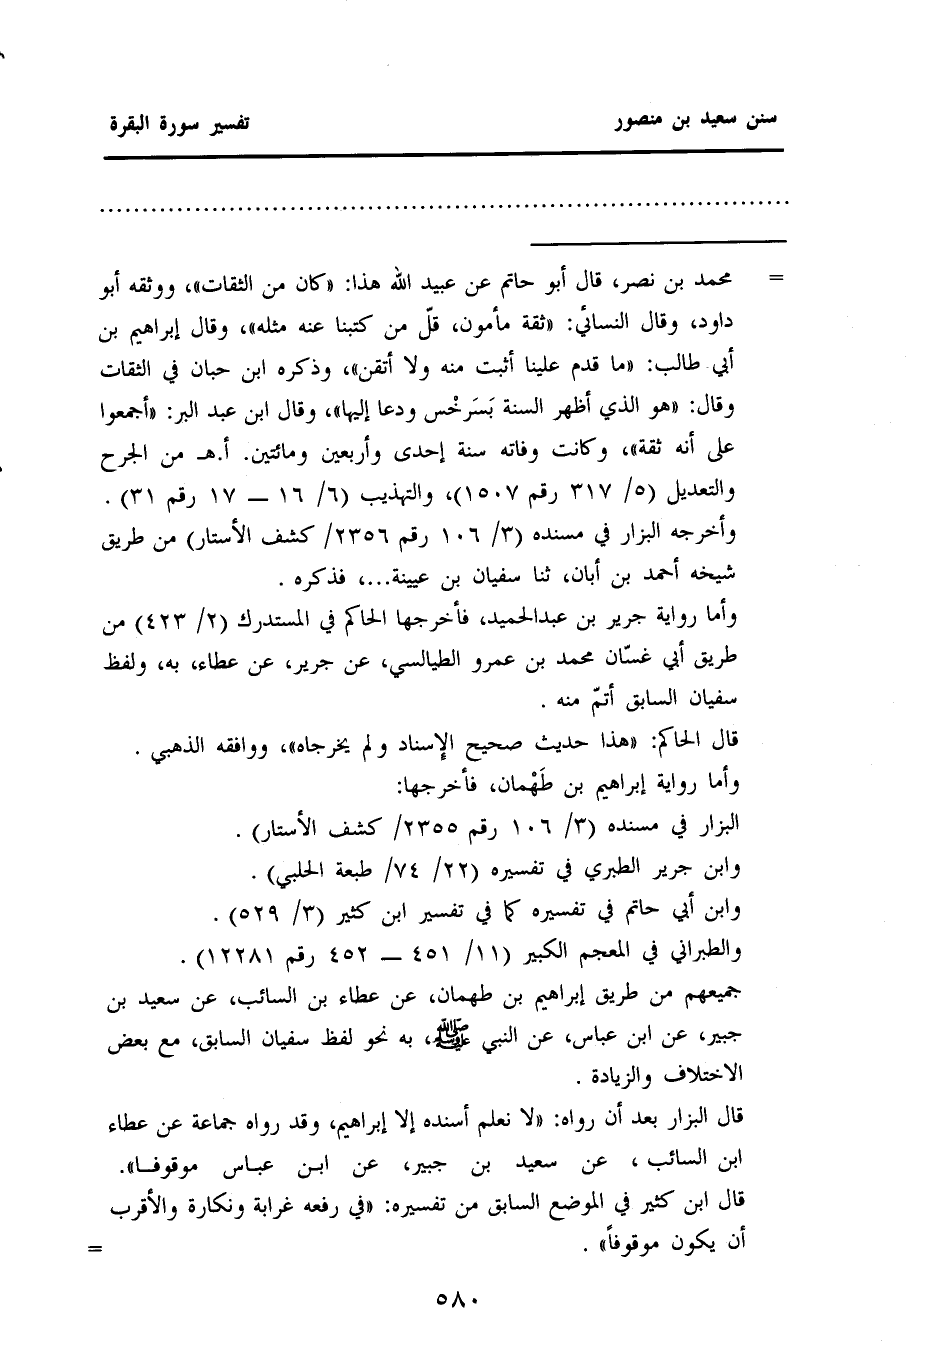 سنن سعيد بن منصور
تفسير سورة البقرة
= محمد بن نصر، قال أبو حاتم عن عبيد الله هذا: «كان من الثقات»، ووثقه أبو
داود، وقال النسائي: «ثقة مأمون، قلّ من كتبنا عنه مثله»، وقال إبراهيم بن
أبي طالب: «ما قدم علينا أثبت منه ولا أتقن»، وذكره ابن حبان في الثقات
وقال: «هو الذي أظهر السنة بَسَرخْس ودعا إليها»، وقال ابن عبد البر: «أجمعوا
على أنه ثقة»، وكانت وفاته سنة إحدى وأربعين ومائتين. أ.هـ من الجرح
والتعديل (٥/ ٣١٧ رقم ١٥٠٧)، والتهذيب (٦/ ١٦ ــ ١٧ رقم ٣١) .
وأخرجه البزار في مسنده (٣/ ١٠٦ رقم ٢٣٥٦/ كشف الأستار) من طريق
شيخه أحمد بن أبان، ثنا سفيان بن عيينة...، فذكره .
وأما رواية جرير بن عبدالحميد، فأخرجها الحاكم في المستدرك (٢/ ٤٢٣) من
طريق أبي غسّان محمد بن عمرو الطيالسي، عن جرير، عن عطاء، به، ولفظ
سفيان السابق أتمّ منه .
قال الحاكم: «هذا حديث صحيح الإسناد ولم يخرجاه»، ووافقه الذهبي .
وأما رواية إبراهيم بن طَهْمان، فأخرجها:
البزار في مسنده (٣/ ١٠٦ رقم ٢٣٥٥/ كشف الأستار) .
وابن جرير الطبري في تفسيره (٢٢/ ٧٤/ طبعة الحلبي) .
وابن أبي حاتم في تفسيره كما في تفسير ابن كثير (٣/ ٥٢٩) .
والطبراني في المعجم الكبير (١١/ ٤٥١ ــ ٤٥٢ رقم ١٢٢٨١) .
جميعهم من طريق إبراهيم بن طهمان، عن عطاء بن السائب، عن سعيد بن
جبير، عن ابن عباس، عن النبي ﷺ، به نحو لفظ سفيان السابق، مع بعض
الاختلاف والزيادة .
قال البزار بعد أن رواه: «لا نعلم أسنده إلا إبراهيم، وقد رواه جماعة عن عطاء
ابن السائب ، عن سعيد بن جبير، عن ابـن عبـاس موقوفـا».
قال ابن كثير في الموضع السابق من تفسيره: «في رفعه غرابة ونكارة والأقرب
أن يكون موقوفاً» . =
٥٨٠